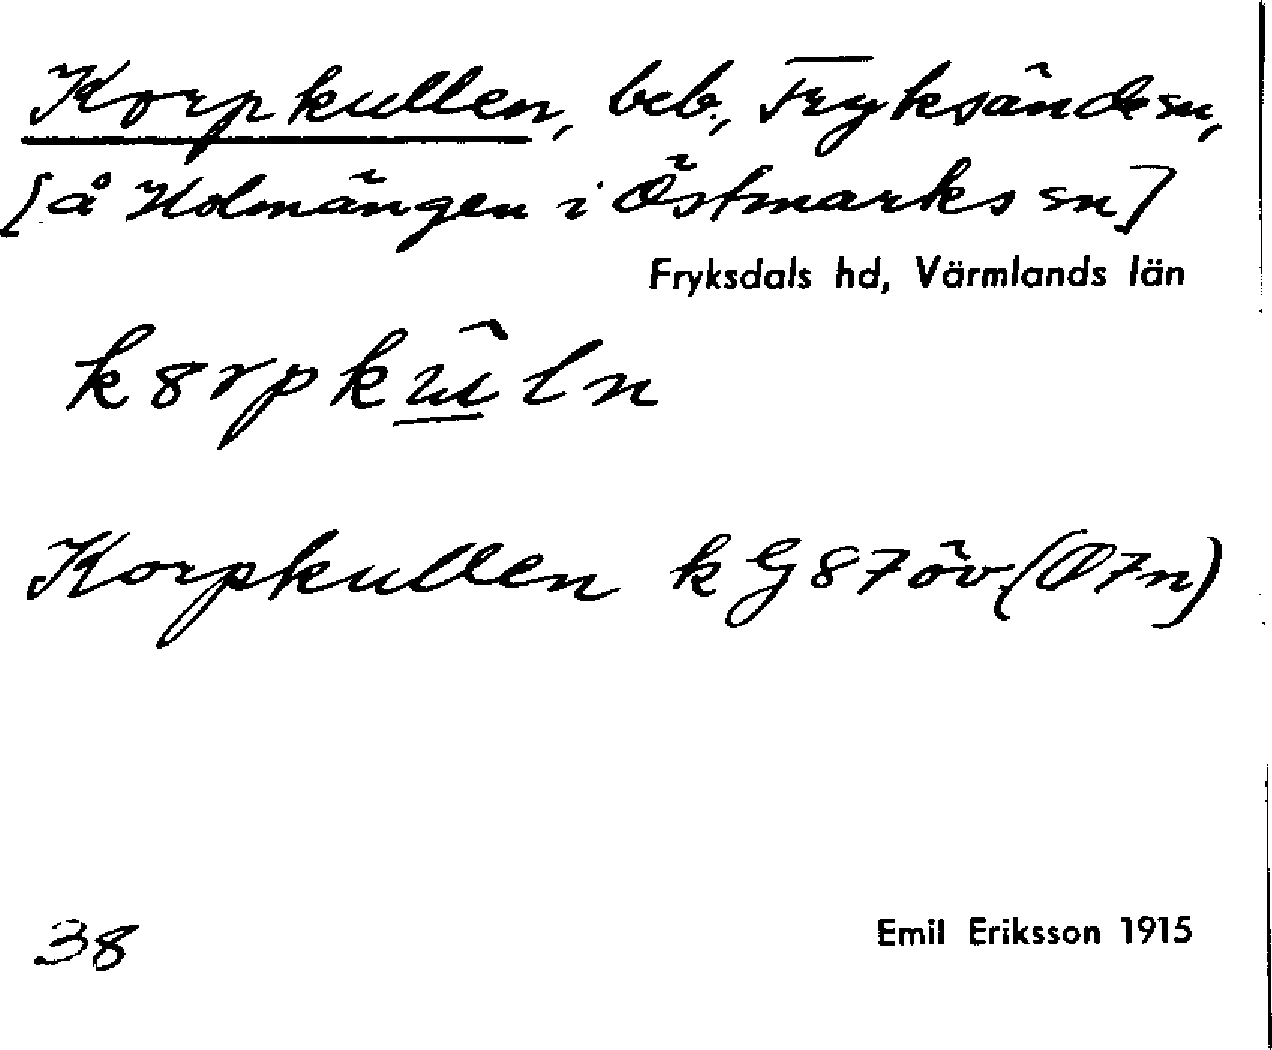 Korpkullen, beb., Fryksände sn,
[å Holmängen i Östmarks sn]
Fryksdals hd, Värmlands län
Korpkullen k G87öv (Ö7n)
38
Emil Eriksson 1915